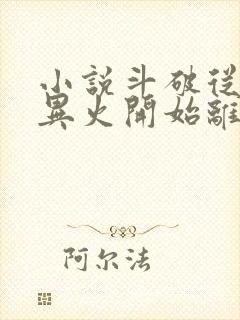 小說斗破從
異火開始離
阿尔法